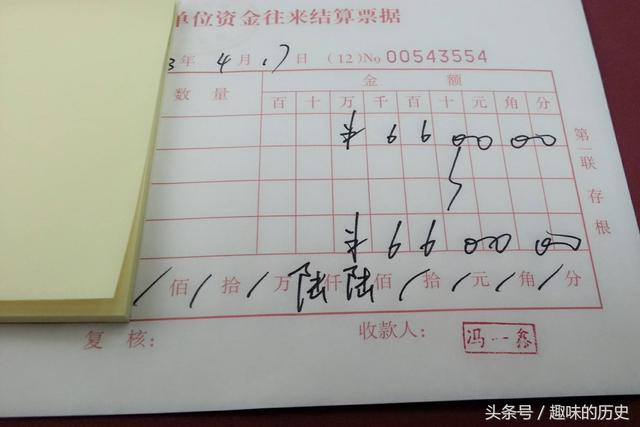 单位资金往来结算票据
3 年 4 月 17 日 (12) No 00543554
数 量 金 额
百 十 万 千 百 十 元 角 分
¥ 6 6 0 0 0 0
¥ 6 6 0 0 0 0
/ 佰 / 拾 / 万 陆 仟 陆 佰 / 拾 / 元 / 角 / 分
第一联 存根
复 核: 收款人: 冯一鑫
头条号 / 趣味的历史